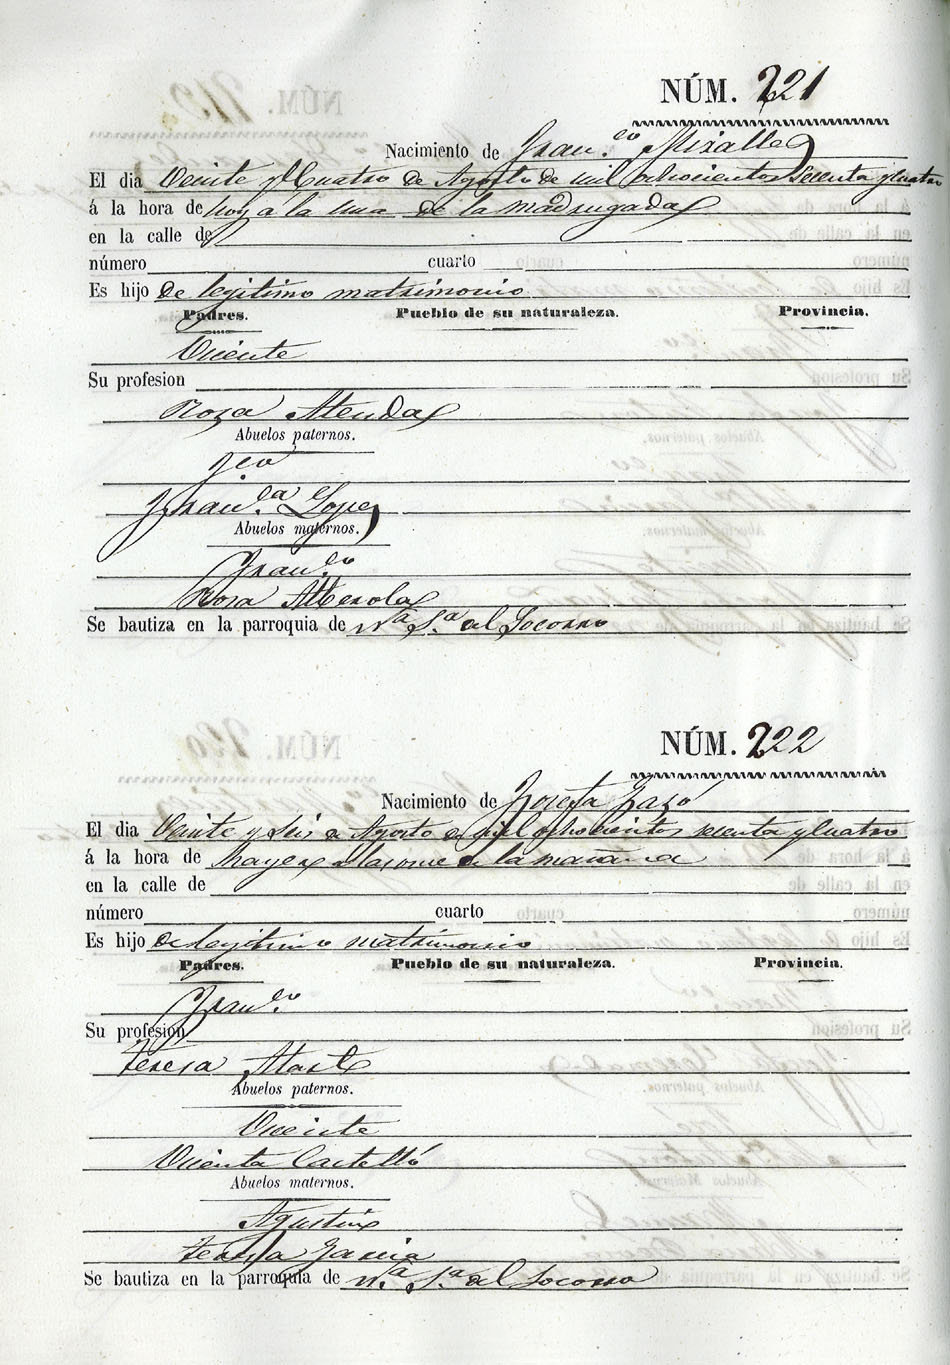 NÚM. 221
Nacimiento de Fran.co Miralles
El dia Veinte y Cuatro de Agosto de mil ochocientos Setenta y cuatro
á la hora de hoy a la una de la madrugada
en la calle de
número cuarto
Es hijo de legitimo matrimonio
Padres. Pueblo de su naturaleza. Provincia.
Vicente
Su profesion
Rosa
Abuelos paternos.
Fco
Fran.ca Lopez
Abuelos maternos.
Fran.co
Rosa Alberola
Se bautiza en la parroquia de N.a S.a del Socorro
NÚM. 222
Nacimiento de Josefa
El dia Veinte y Seis de Agosto de mil ochocientos setenta y cuatro
á la hora de las once de la mañana
en la calle de
número cuarto
Es hijo de legitimo matrimonio
Padres. Pueblo de su naturaleza. Provincia.
Fran.co
Su profesion
Teresa
Abuelos paternos.
Vicente
Vicenta Castelló
Abuelos maternos.
Agustin
Teresa Garcia
Se bautiza en la parroquia de N.a S.a del Socorro